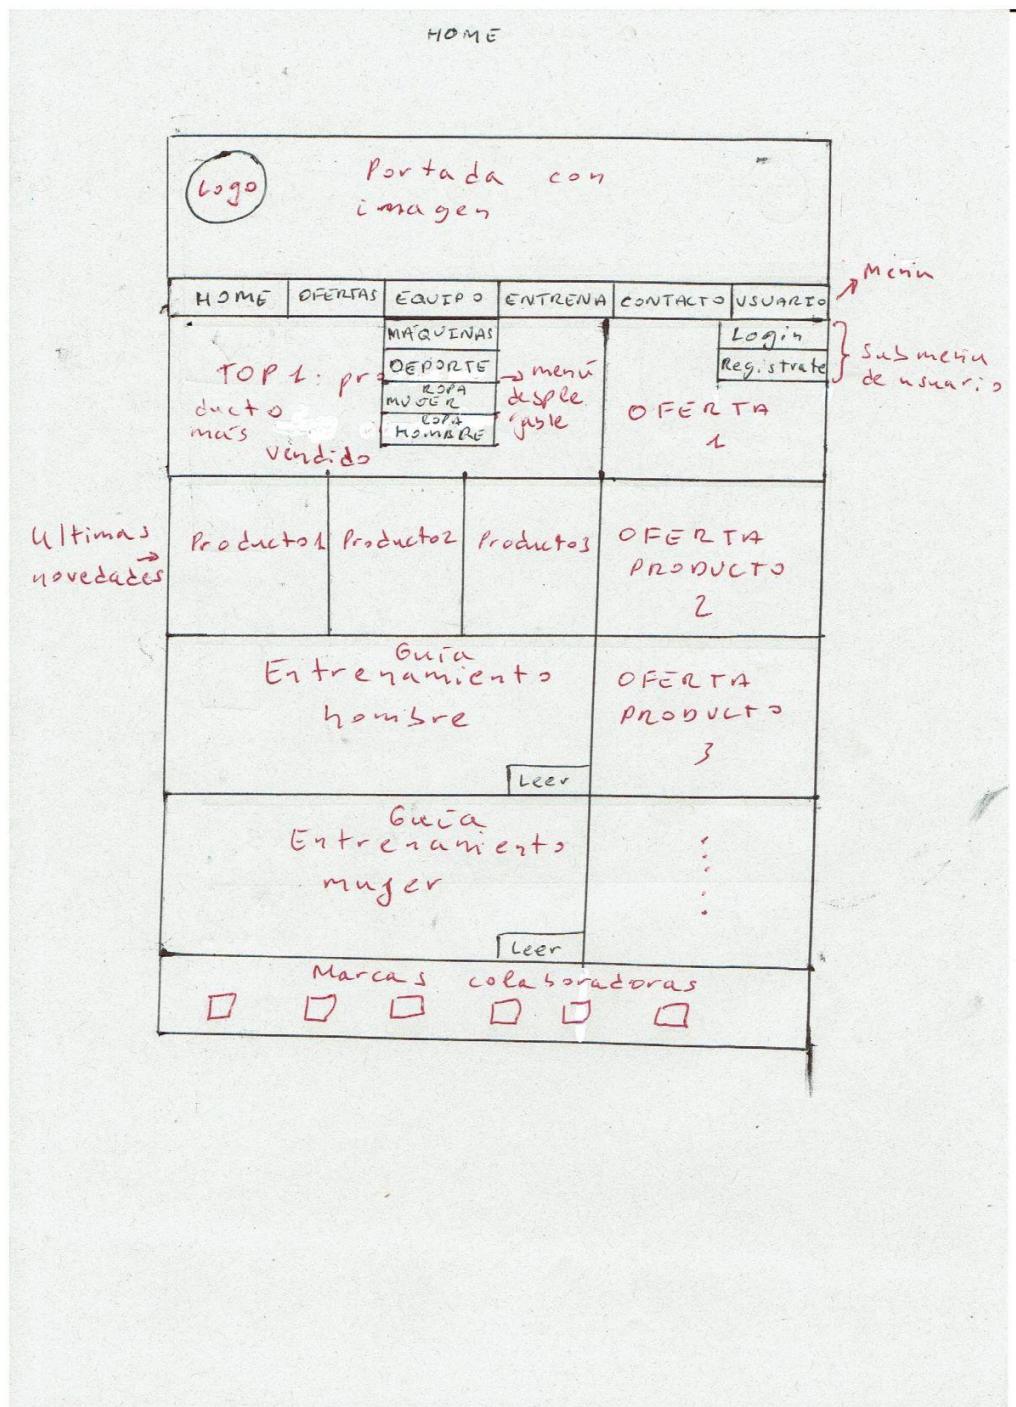 HOME
Logo
Portada con
imagen
Menú
HOME OFERTAS EQUIPO ENTRENA CONTACTO USUARIO
MÁQUINAS
DEPORTE
ROPA
MUJER
ROPA
HOMBRE
→ menú
desple
gable
Login
Registrate
Submenu
de usuario
TOP 1: pro
ducto
más
vendido
OFERTA
1
Ultimas
novedades
Producto1 Producto2 Producto3
OFERTA
PRODUCTO
2
Guía
Entrenamiento
hombre
Leer
OFERTA
PRODUCTO
3
Guía
Entrenamiento
mujer
Leer
Marcas colaboradoras